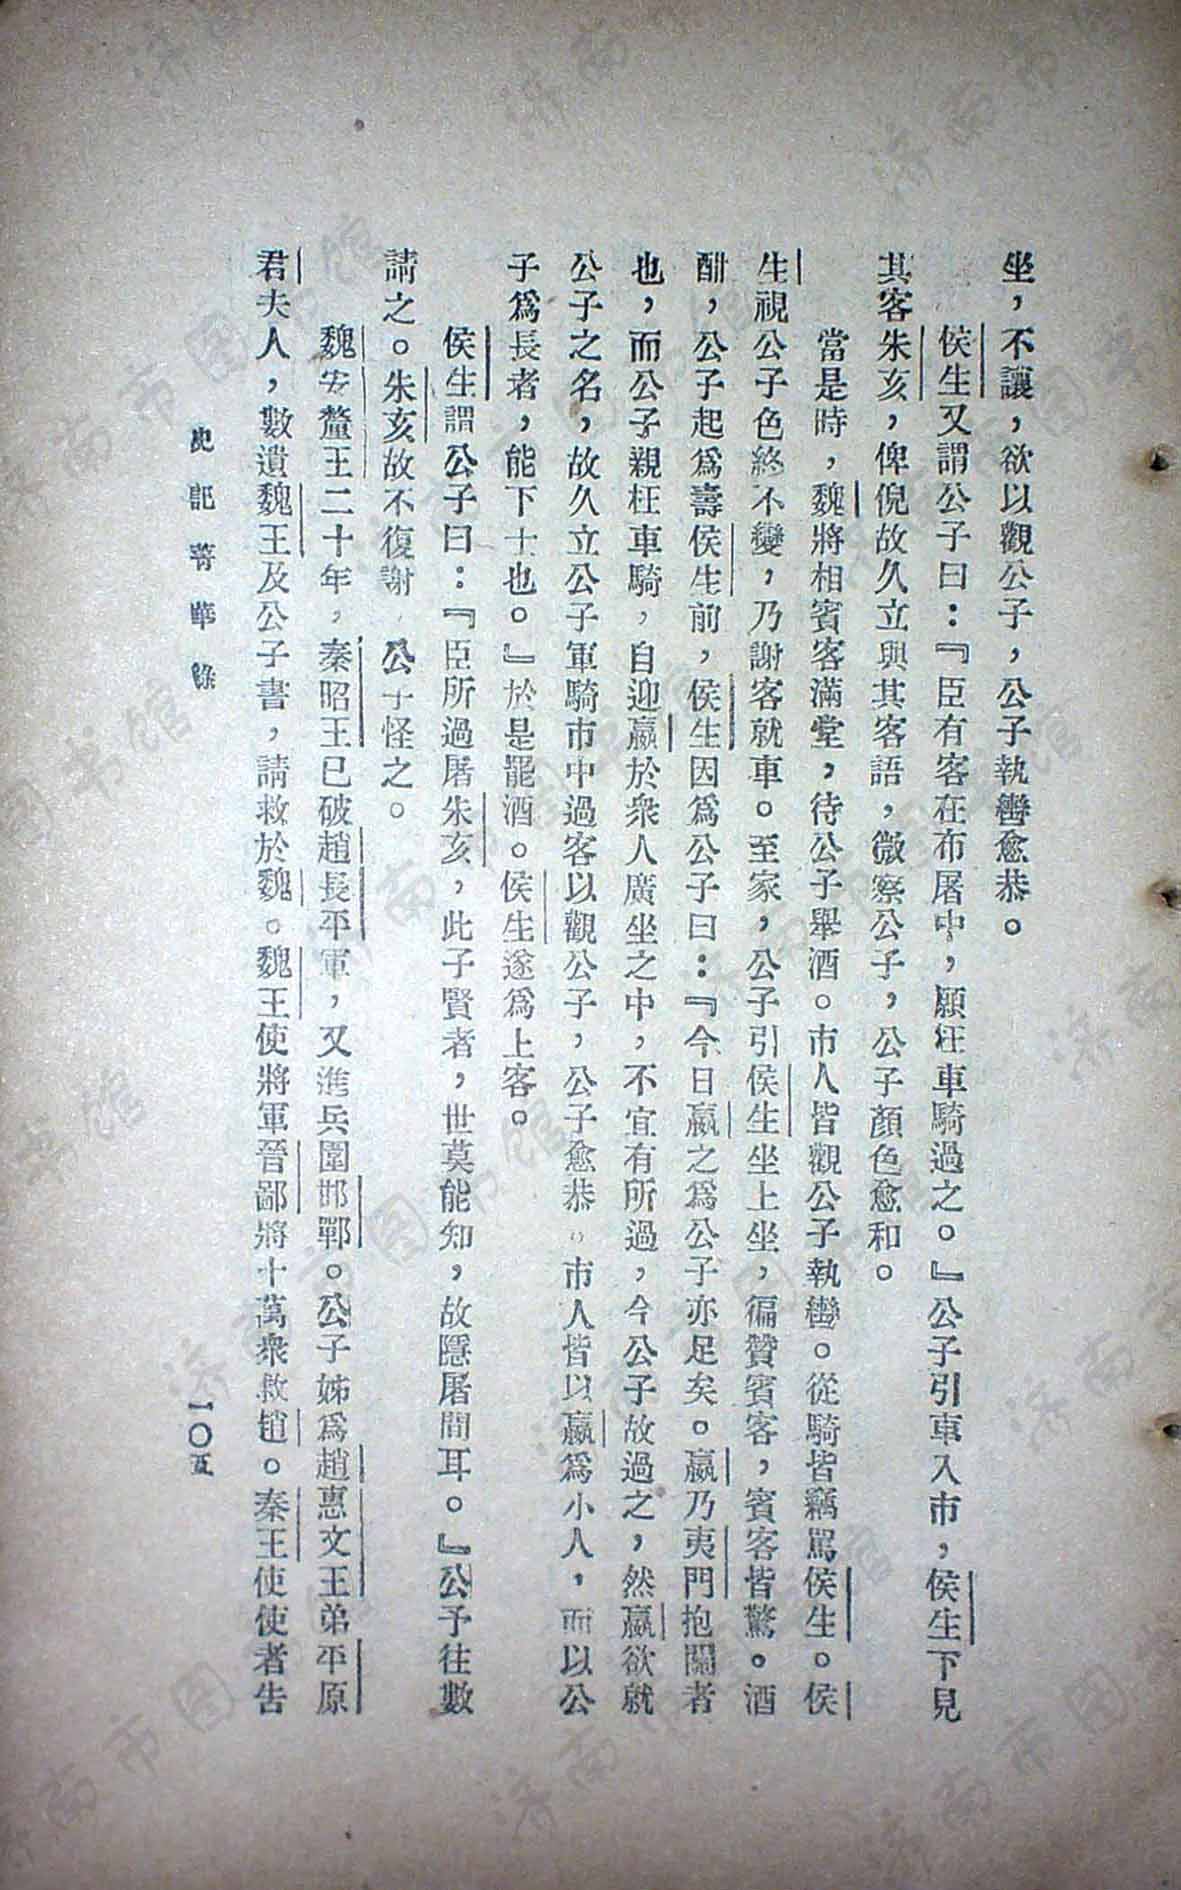 坐，不讓，欲以觀公子，公子執轡愈恭。
侯生又謂公子曰：『臣有客在布屠中，願枉車騎過之。』公子引車入市，侯生下見
其客朱亥，俾倪故久立與其客語，微察公子，公子顏色愈和。
當是時，魏將相賓客滿堂，待公子舉酒。市人皆觀公子執轡。從騎皆竊罵侯生。侯
生視公子色終不變，乃謝客就車。至家，公子引侯生坐上坐，徧贊賓客，賓客皆驚。酒
酣，公子起爲壽侯生前，侯生因爲公子曰：『今日嬴之爲公子亦足矣。嬴乃夷門抱關者
也，而公子親枉車騎，自迎嬴於衆人廣坐之中，不宜有所過，今公子故過之，然嬴欲就
公子之名，故久立公子軍騎市中過客以觀公子，公子愈恭。市人皆以嬴爲小人，而以公
子爲長者，能下士也。』於是罷酒。侯生遂爲上客。
侯生謂公子曰：『臣所過屠朱亥，此子賢者，世莫能知，故隱屠間耳。』公子往數
請之。朱亥故不復謝，公子怪之。
魏安釐王二十年，秦昭王已破趙長平軍，又進兵圍邯鄲。公子姊爲趙惠文王弟平原
君夫人，數遺魏王及公子書，請救於魏。魏王使將軍晉鄙將十萬衆救趙。秦王使使者告
史記菁華錄
一〇五
济南市图书馆